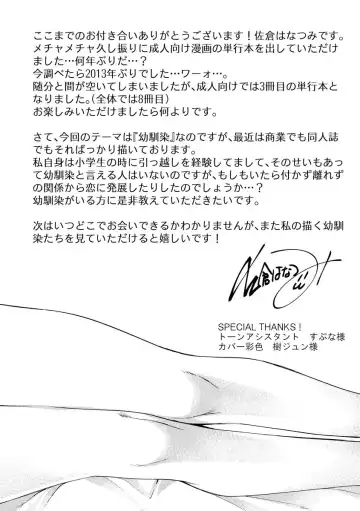 ここまでのお付き合いありがとうございます！佐倉はなつみです。
メチャメチャ久し振りに成人向け漫画の単行本を出していただけ
ました…何年ぶりだ…？
今調べたら2013年ぶりでした…ワーォ…。
随分と間が空いてしまいましたが、成人向けでは3冊目の単行本と
なりました。(全体では8冊目)
お楽しみいただけましたら何よりです。
さて、今回のテーマは『幼馴染』なのですが、最近は商業でも同人誌
でもそればっかり描いております。
私自身は小学生の時に引っ越しを経験してまして、そのせいもあっ
て幼馴染と言える人はいないのですが、もしもいたら付かず離れず
の関係から恋に発展したりしたのでしょうか…？
幼馴染がいる方に是非教えていただきたいです。
次はいつどこでお会いできるかわかりませんが、また私の描く幼馴
染たちを見ていただけると嬉しいです！
SPECIAL THANKS！
トーンアシスタント　すぷな様
カバー彩色　樹ジュン様